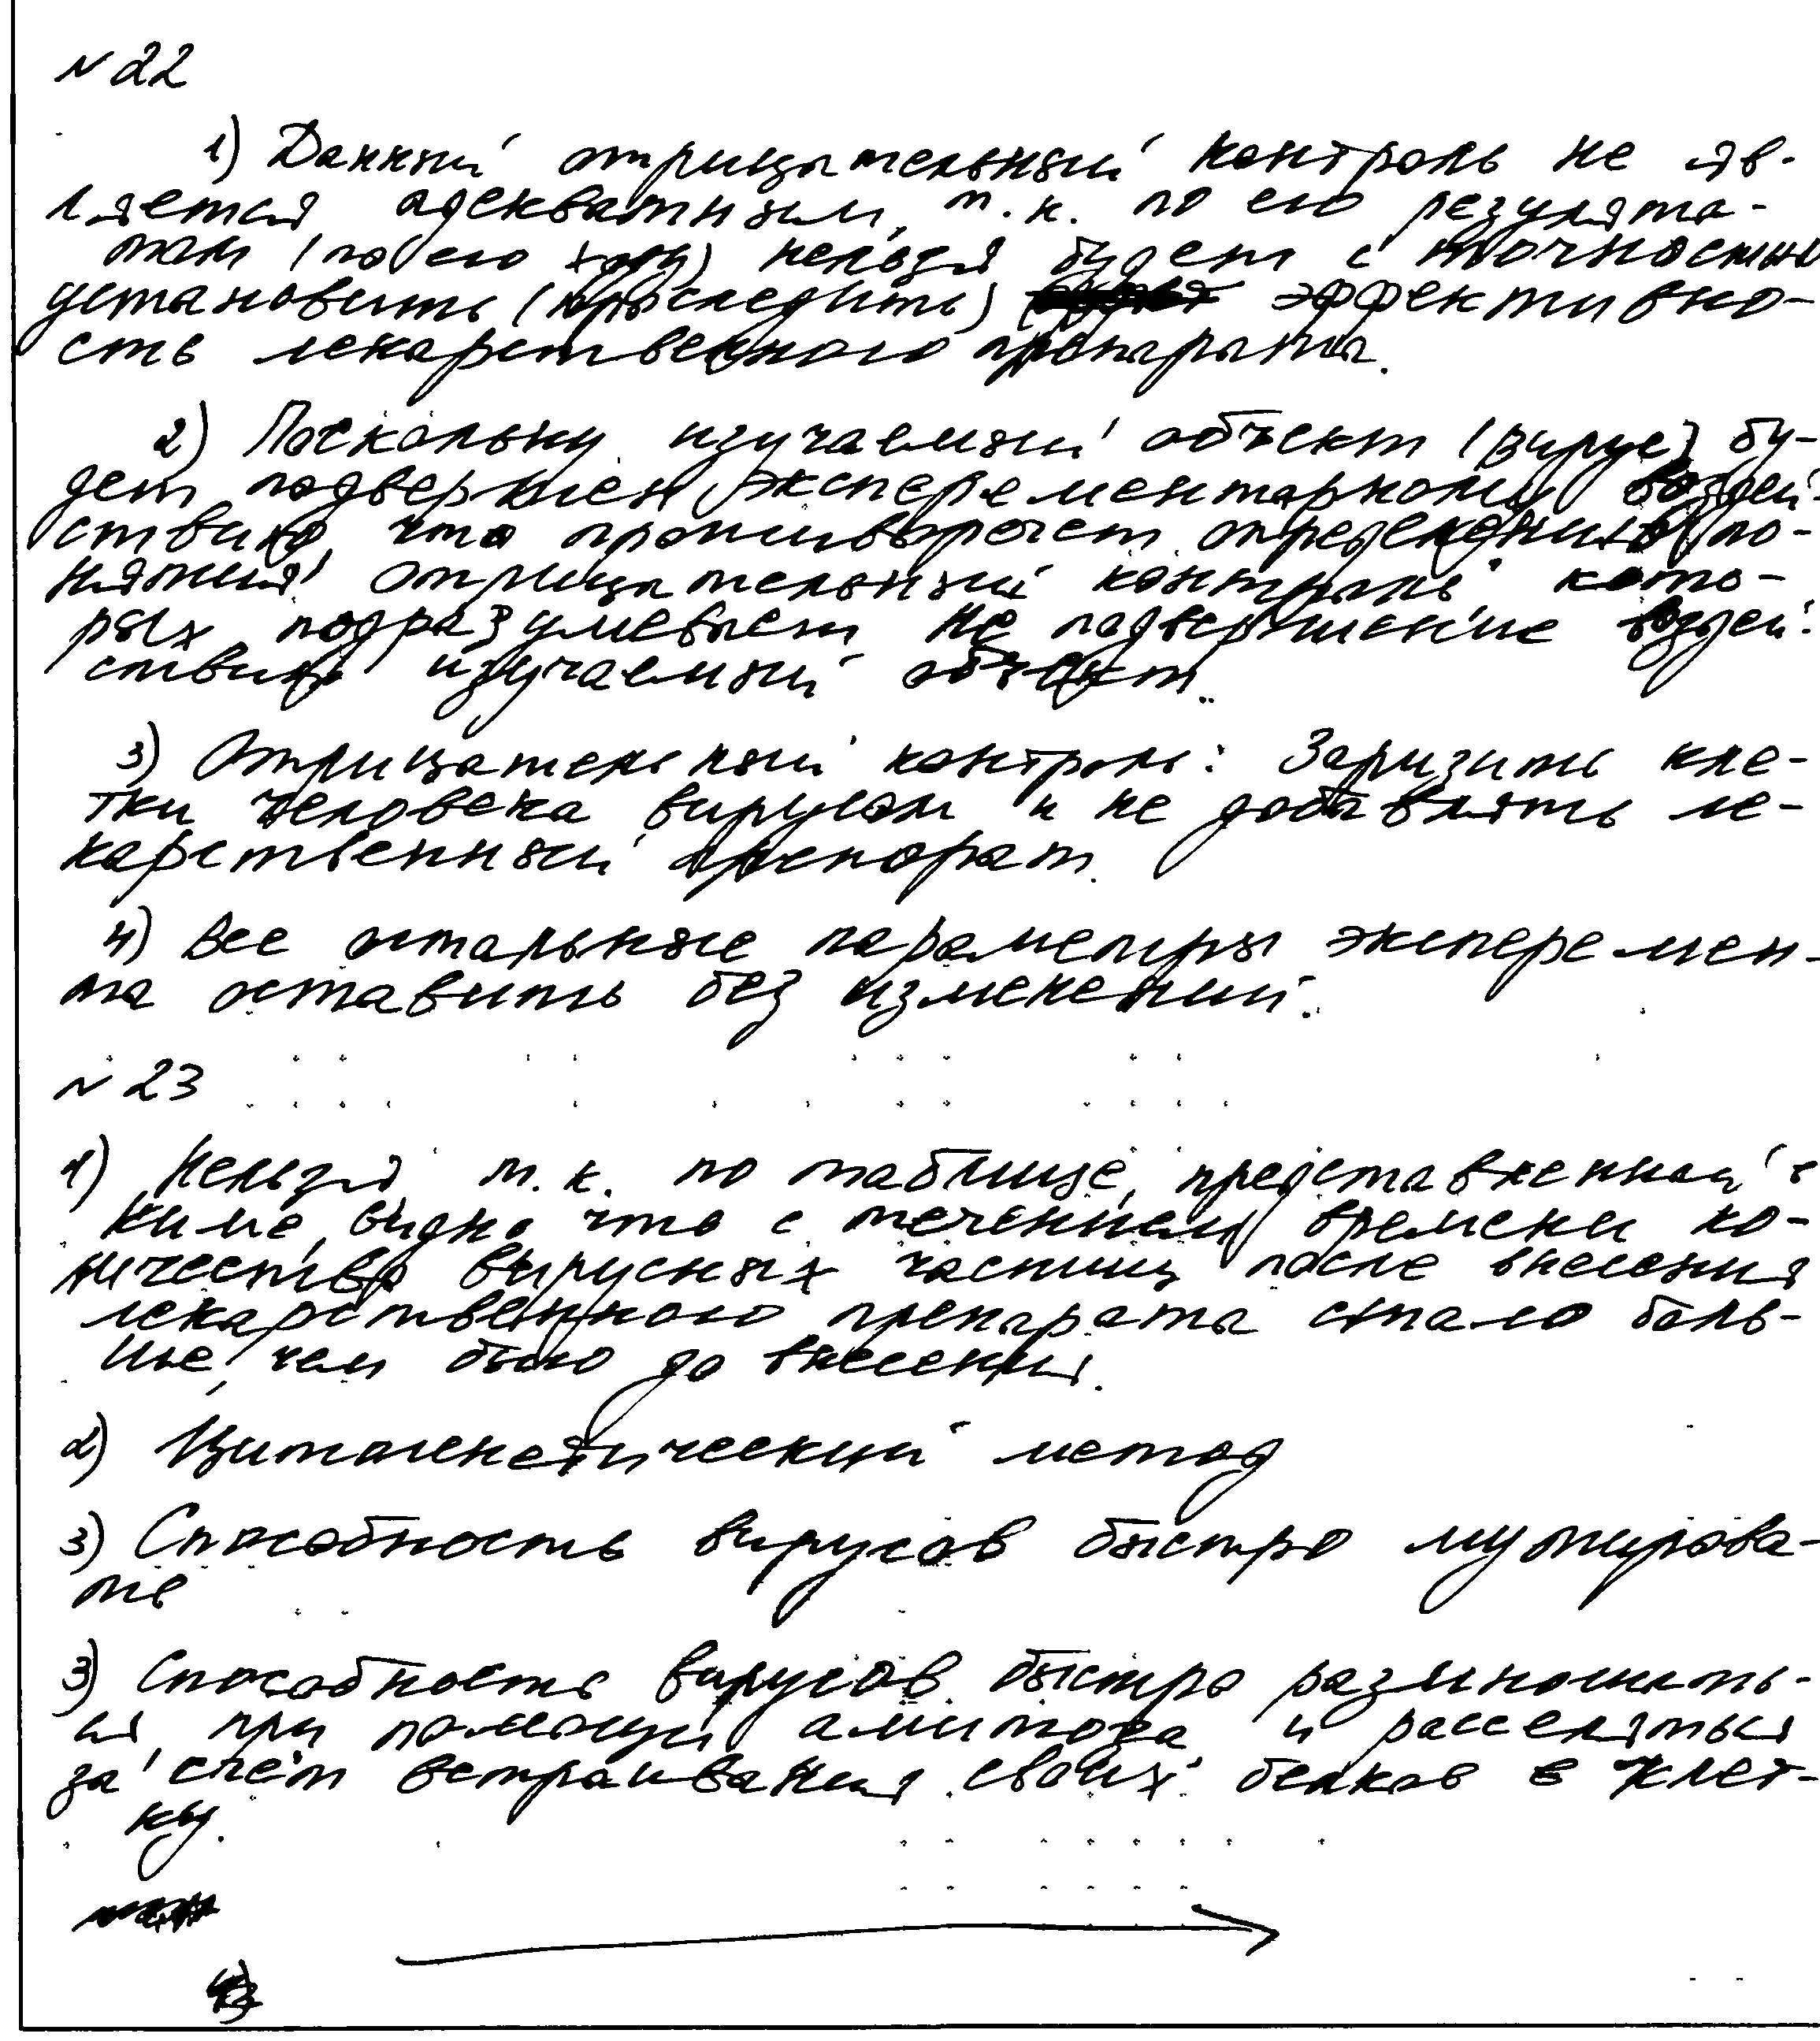 № 22
1) Данный отрицательный контроль не яв-
ляется адекватным, т.к. по его результа-
там (по его ходу) нельзя будет с точностью
установить (проследить) эффективно-
сть лекарственного препарата.
2) Поскольку изучаемый объект (вирус) бу-
дет подвержен эксперементарному воздей-
ствию, что противоречет определению по-
нятия "отрицательный контроль" кото-
рых подразумевает не подвержение воздей-
ствию изучаемый объект.
3) Отрицательный контроль: Заризить кле-
тки человека вирусом и не добавлять ле-
карственный препорат.
4) Все остальные параметры эксперемен-
та оставить без изменений.
№ 23
1) Нельзя т.к. по таблице, представленной в
киме, видно что с течением времени ко-
личество вирусных частиц после внесения
лекарственного препарата стало боль-
ше, чем было до внесения.
2) Цитогенетический метод
3) Способность вирусов быстро мутирова-
ть
3) Способность вирусов быстро размножать-
ся при помощи амитоза и расселяться
за счёт встраивания своих белков в клет-
ку.